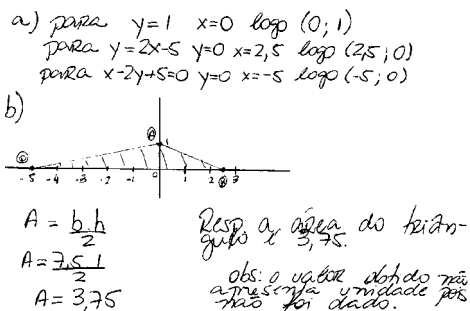 a) para y=1 x=0 logo (0; 1)
para y=2x-5 y=0 x=2,5 logo (2,5; 0)
para x-2y+5=0 y=0 x=-5 logo (-5; 0)
b)
A 1
-5 -4 -3 -2 -1 0 1 2 3
A = b.h/2
A = 7,5 1/2
A = 3,75
Resp. a área do triân-
gulo é 3,75.
obs: o valor obtido não
apresenta unidade pois
não foi dado.